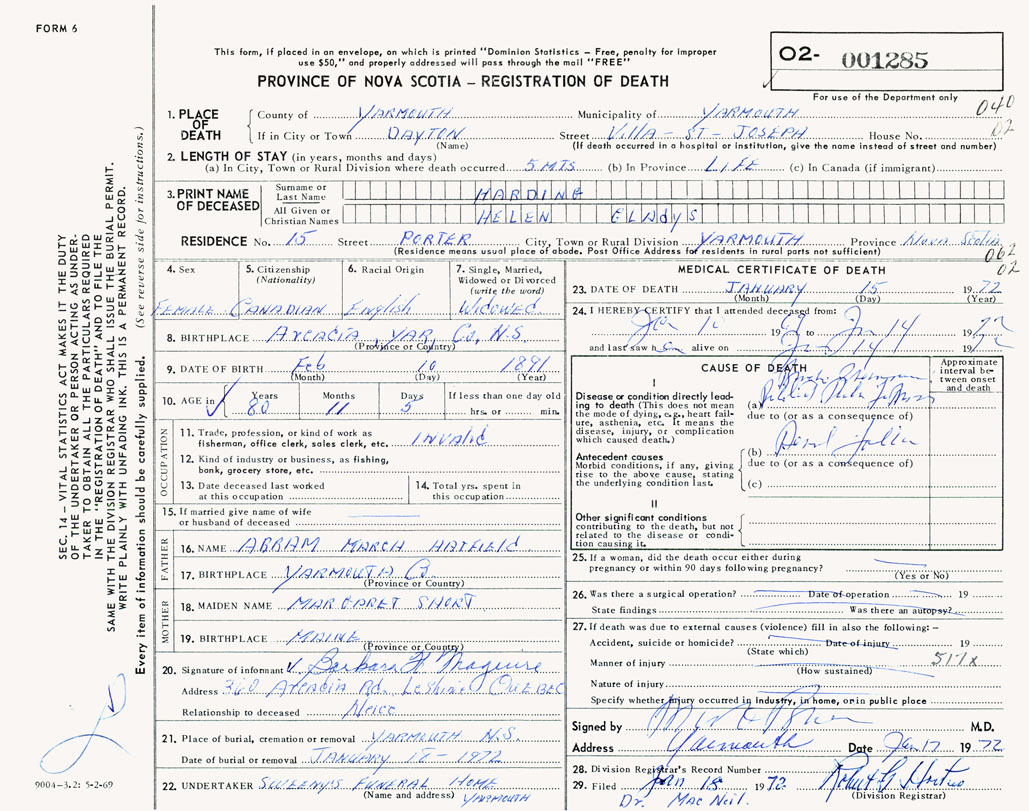 FORM 6
This form, if placed in an envelope, on which is printed "Dominion Statistics – Free, penalty for improper
use $50," and properly addressed will pass through the mail "FREE"
PROVINCE OF NOVA SCOTIA – REGISTRATION OF DEATH
02- 001285
For use of the Department only
040
02
1. PLACE OF DEATH
County of YARMOUTH Municipality of YARMOUTH
If in City or Town DAYTON Street VILLA – ST – JOSEPH House No.
(Name) (If death occurred in a hospital or institution, give the name instead of street and number)
2. LENGTH OF STAY (in years, months and days)
(a) In City, Town or Rural Division where death occurred 5 MTS. (b) In Province LIFE (c) In Canada (if immigrant)
3. PRINT NAME OF DECEASED
Surname or Last Name HARDING
All Given or Christian Names HELEN GLADYS
RESIDENCE No. 15 Street PORTER City, Town or Rural Division YARMOUTH Province Nova Scotia
(Residence means usual place of abode. Post Office Address for residents in rural parts not sufficient)
062
02
4. Sex FEMALE
5. Citizenship (Nationality) CANADIAN
6. Racial Origin English
7. Single, Married, Widowed or Divorced (write the word) WIDOWED
8. BIRTHPLACE Arcadia YAR. Co, N.S.
(Province or Country)
9. DATE OF BIRTH Feb 10 1891
(Month) (Day) (Year)
10. AGE in Years 80 Months 11 Days 5 If less than one day old hrs. or min.
OCCUPATION
11. Trade, profession, or kind of work as fisherman, office clerk, sales clerk, etc. INVALID
12. Kind of industry or business, as fishing, bank, grocery store, etc.
13. Date deceased last worked at this occupation
14. Total yrs. spent in this occupation
15. If married give name of wife or husband of deceased
FATHER
16. NAME ABRAM MARCH HATFIELD
17. BIRTHPLACE YARMOUTH Co.
(Province or Country)
MOTHER
18. MAIDEN NAME MARGARET SHORT
19. BIRTHPLACE MAINE
(Province or Country)
20. Signature of informant Barbara H Maguire
Address 360 Arcadia Rd. QUEBEC
Relationship to deceased Neice
21. Place of burial, cremation or removal YARMOUTH N.S.
Date of burial or removal JANUARY 18 – 1972
22. UNDERTAKER SWEENY'S FUNERAL HOME
(Name and address) YARMOUTH
MEDICAL CERTIFICATE OF DEATH
23. DATE OF DEATH JANUARY 15 1972
(Month) (Day) (Year)
24. I HEREBY CERTIFY that I attended deceased from:
Jan 1969 to Jan 14 1972
and last saw h er alive on Jan 14 1972
CAUSE OF DEATH
Approximate interval between onset and death
I
Disease or condition directly leading to death (This does not mean the mode of dying, e.g., heart failure, asthenia, etc. it means the disease, injury, or complication which caused death.)
(a)
due to (or as a consequence of)
Antecedent causes
Morbid conditions, if any, giving rise to the above cause, stating the underlying condition last.
(b)
due to (or as a consequence of)
(c)
II
Other significant conditions
contributing to the death, but not related to the disease or condition causing it.
25. If a woman, did the death occur either during pregnancy or within 90 days following pregnancy?
(Yes or No)
26. Was there a surgical operation? Date of operation 19
State findings Was there an autopsy?
27. If death was due to external causes (violence) fill in also the following: –
Accident, suicide or homicide? Date of injury 19
(State which)
Manner of injury 517x
(How sustained)
Nature of injury
Specify whether injury occurred in industry, in home, or in public place
Signed by M.D.
Address Yarmouth Date Jan 17 1972
28. Division Registrar's Record Number
29. Filed Jan 18 1972 (Division Registrar)
Dr. Mac Neil.
SEC. 14 – VITAL STATISTICS ACT MAKES IT THE DUTY
OF THE UNDERTAKER OR PERSON ACTING AS UNDER-
TAKER TO OBTAIN ALL THE PARTICULARS REQUIRED
IN THE "REGISTRATION OF DEATH" AND TO FILE THE
SAME WITH THE DIVISION REGISTRAR WHO SHALL ISSUE THE BURIAL PERMIT.
WRITE PLAINLY WITH UNFADING INK. THIS IS A PERMANENT RECORD.
Every item of information should be carefully supplied. (See reverse side for instructions.)
9004-3.2: 5-2-69